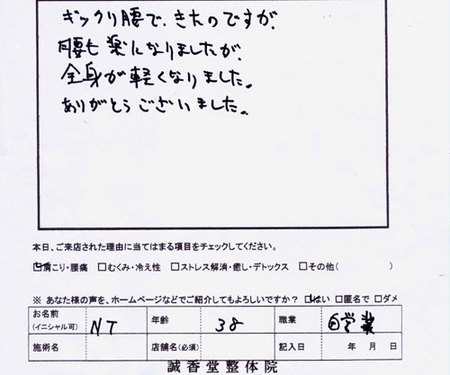 ギックリ腰で、きたのですが、
腰も楽になりましたが、
全身が軽くなりました。
ありがとうございました。
本日、ご来店された理由に当てはまる項目をチェックしてください。
☑肩こり・腰痛 □むくみ・冷え性 □ストレス解消・癒し・デトックス □その他( )
※ あなた様の声を、ホームページなどでご紹介してもよろしいですか? ☑はい □匿名で □ダメ
お名前 (イニシャル可) NT 年齢 38 職業 自営業
施術名 店舗名(必須) 記入日 年 月 日
誠香堂整体院